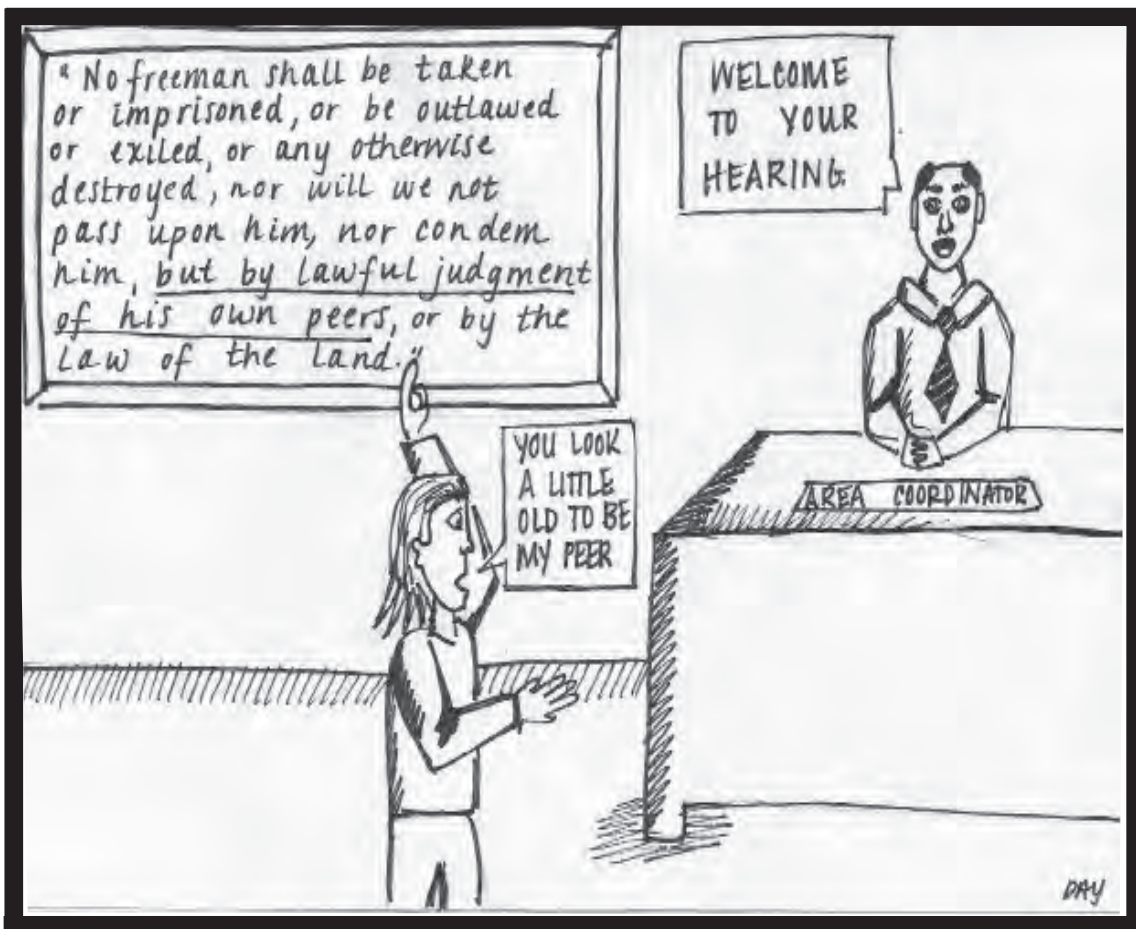 "No freeman shall be taken
or imprisoned, or be outlawed
or exiled, or any otherwise
destroyed, nor will we not
pass upon him, nor condem
him, but by lawful judgment
of his own peers, or by the
law of the land."
WELCOME
TO YOUR
HEARING
YOU LOOK
A LITTLE
OLD TO BE
MY PEER
AREA COORDINATOR
DAY